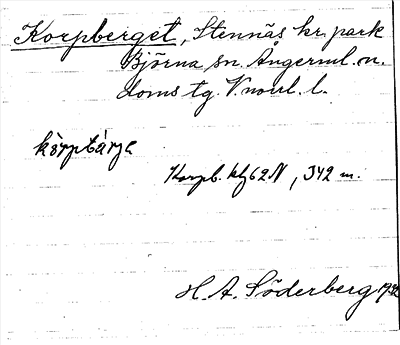 Korpberget, Stennäs kr. park
Björna sn. Ångerml. n.
doms tg. V.norrl. l.
kòrpbàrje
Korpb. 62 N, 342 m.
H. A. Söderberg